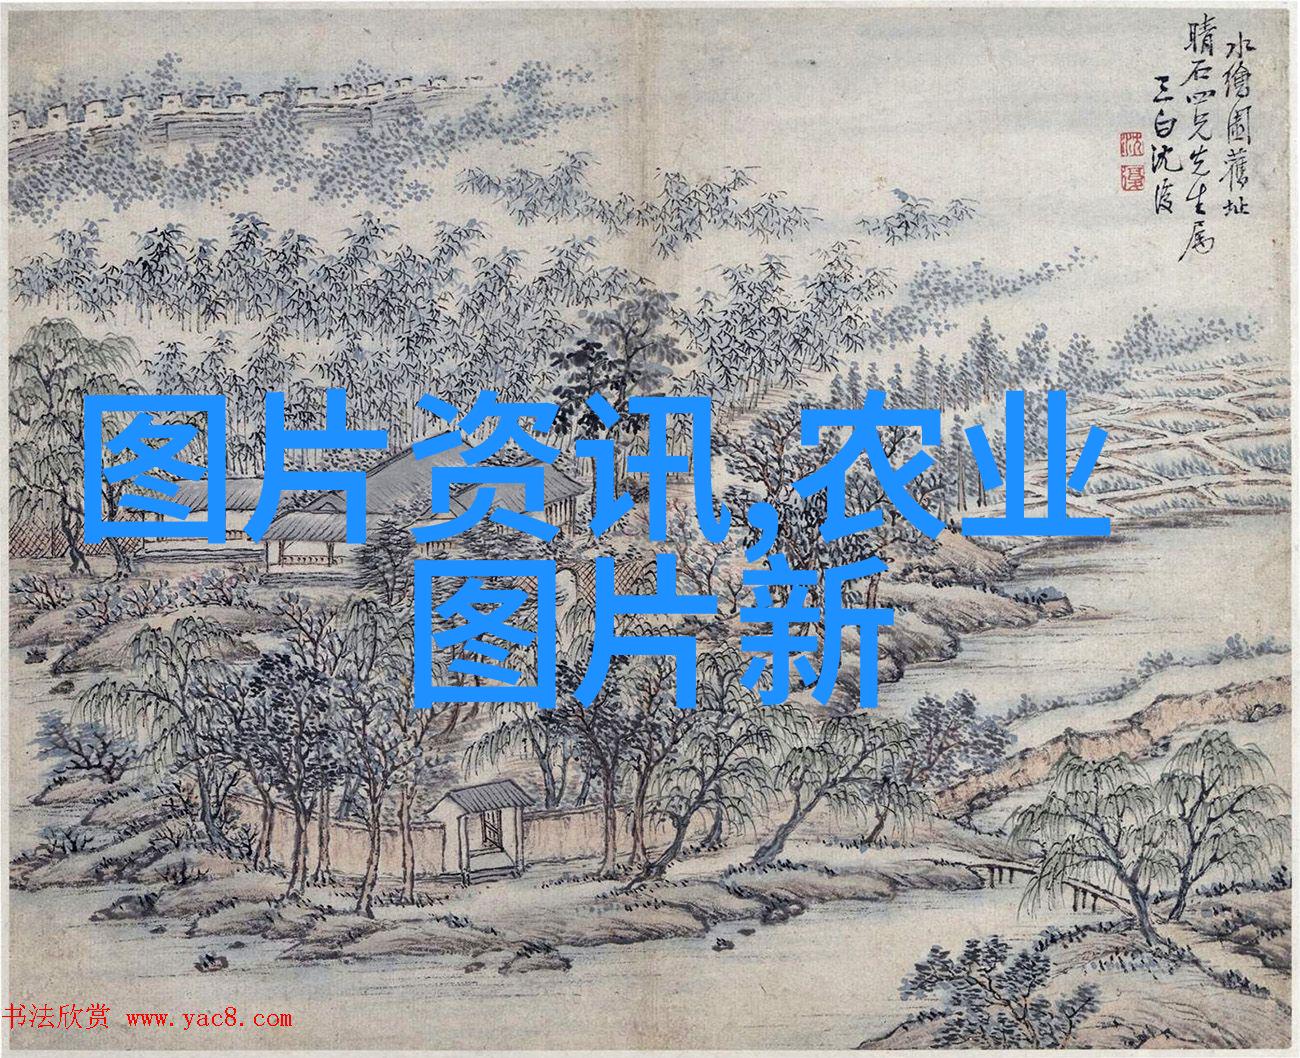 水繪園舊址
晴石四兄先生属
三白沈復
沈
復
图片资讯,农业
图片新
书法欣赏 www.yac8.com